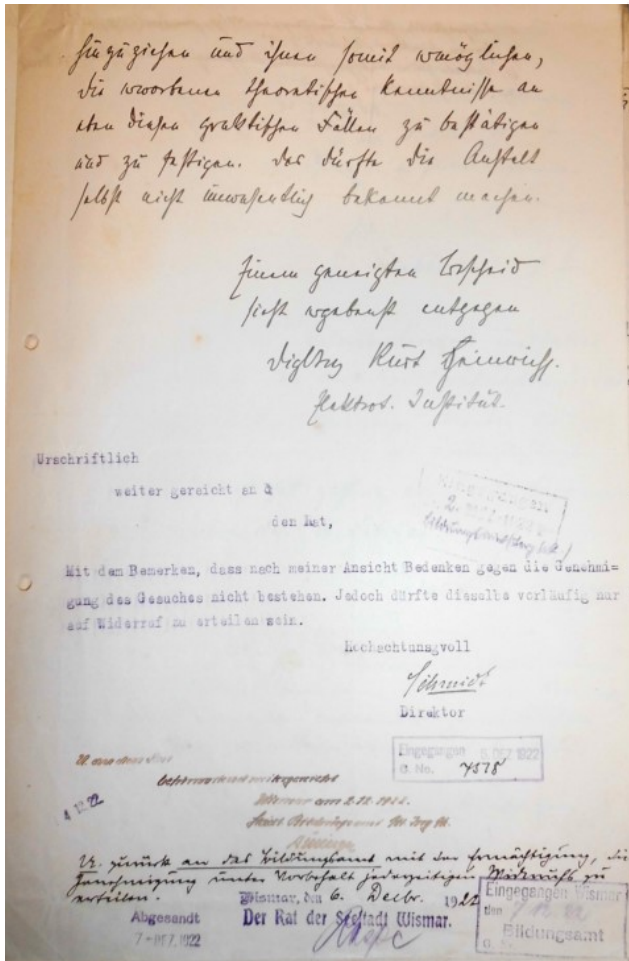 hinzuziehen und ihnen somit ermöglichen,
die erworbenen theoretischen Kenntnisse an
eben diesen praktischen Fällen zu bestätigen
und zu festigen. Das dürfte die Anstalt
selbst nicht unwesentlich bekannt machen.
Einem geneigten Bescheid
sieht ergebenst entgegen
Kurt Heinrich.
Elektrot. Institut.
Urschriftlich
weiter gereicht an
den Rat,
Eingegangen
Mit dem Bemerken, dass nach meiner Ansicht Bedenken gegen die Genehmi-
gung des Gesuches nicht bestehen. Jedoch dürfte dieselbe vorläufig nur
auf Widerruf zu erteilen sein.
Hochachtungsvoll
Schmidt
Direktor
Eingegangen 5 DEZ 1922
G. No. 7578
4 12. 22
befürwortend weitergereicht
Wismar am 2.12.1922.
U. zurück an das Bildungsamt mit der Ermächtigung, die
Genehmigung unter Vorbehalt jederzeitigen Widerrufs zu
erteilen.
Wismar, den 6. Dezbr. 1922
Der Rat der Seestadt Wismar.
Abgesandt
7-DEZ. 1922
Eingegangen Wismar
den
Bildungsamt